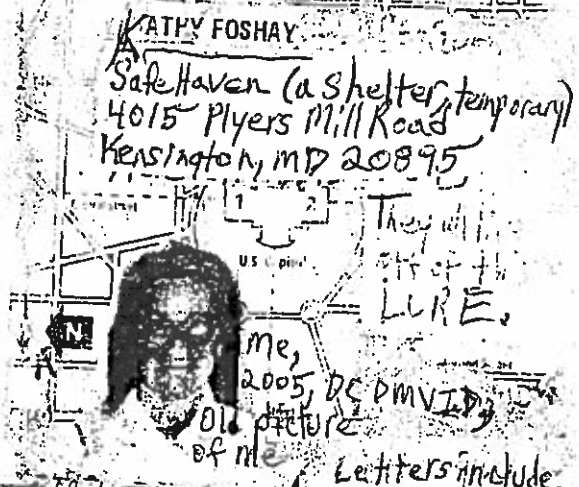 KATHY FOSHAY
Safe Haven (a shelter, temporary)
4015 Plyers Mill Road
Kensington, MD 20895
1 2
They
U.S.
LURE.
N
Me,
2005, DC DMV ID,
Old picture
of me
Letters include